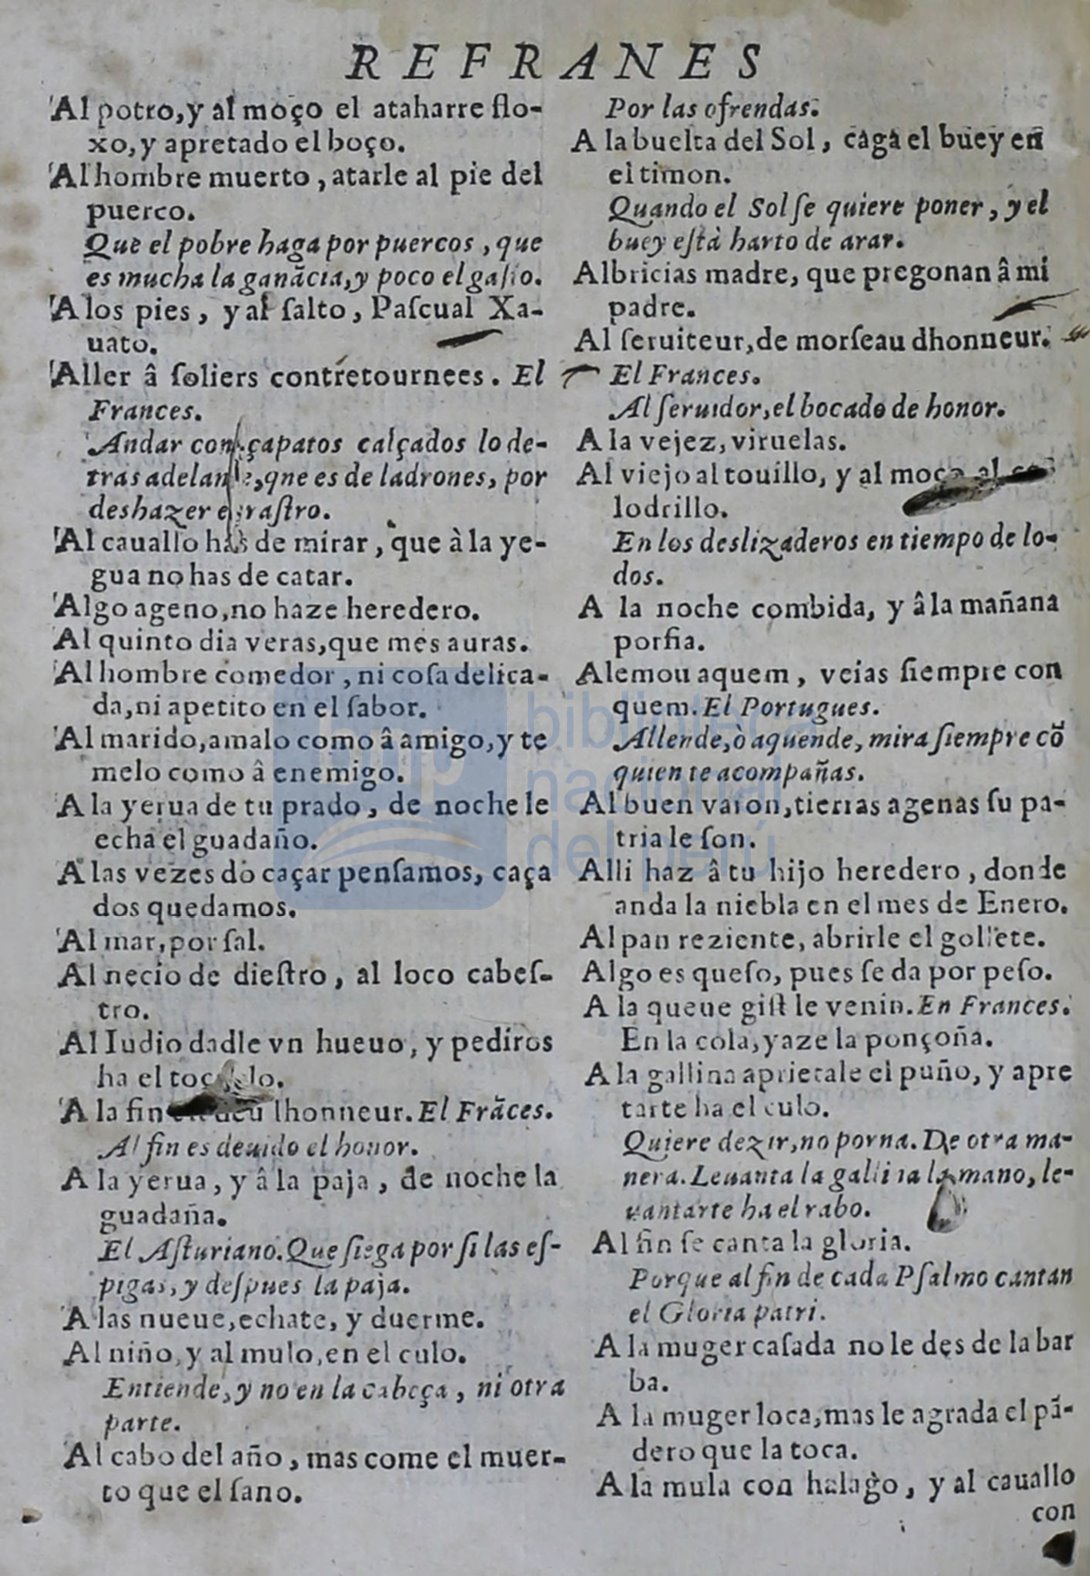 REFRANES
Al potro, y al moço el ataharre flo-
xo, y apretado el boço.
Al hombre muerto, atarle al pie del
puerco.
Que el pobre haga por puercos, que
es mucha la ganãcia, y poco el gasto.
A los pies, y al salto, Pascual Xa-
uato.
Aller â soliers contretournees. El
Frances.
Andar con çapatos calçados lo de-
tras adelante, qne es de ladrones, por
deshazer el rastro.
Al cauallo has de mirar, que à la ye-
gua no has de catar.
Algo ageno, no haze heredero.
Al quinto dia veras, que mes auras.
Al hombre comedor, ni cosa delica-
da, ni apetito en el sabor.
Al marido, amalo como â amigo, y te
melo como â enemigo.
A la yerua de tu prado, de noche le
echa el guadaño.
A las vezes dò caçar pensamos, caça
dos quedamos.
Al mar, por sal.
Al necio de diestro, al loco cabes-
tro.
Al Iudio dadle vn hueuo, y pediros
ha el
A la fin deu lhonneur. El Frãces.
Al fin es deuido el honor.
A la yerua, y â la paja, de noche la
guadaña.
El Asturiano. Que siega por si las es-
pigas, y despues la paja.
A las nueue, echate, y duerme.
Al niño, y al mulo, en el culo.
Entiende, y no en la cabeça, ni otra
parte.
Al cabo del año, mas come el muer-
to que el sano.
Por las ofrendas.
A la buelta del Sol, caga el buey en
el timon.
Quando el Sol se quiere poner, y el
buey està harto de arar.
Albricias madre, que pregonan â mi
padre.
Al seruiteur, de morseau dhonneur.
El Frances.
Al seruidor, el bocado de honor.
A la vejez, viruelas.
Al viejo al touillo, y al moço al
lodrillo.
En los deslizaderos en tiempo de lo-
dos.
A la noche combida, y â la mañana
porfia.
Alemou aquem, veias siempre con
quem. El Portugues.
Allende, ò aquende, mira siempre cõ
quien te acompañas.
Al buen varon, tierras agenas su pa-
tria le son.
Alli haz â tu hijo heredero, donde
anda la niebla en el mes de Enero.
Al pan reziente, abrirle el gollete.
Algo es queso, pues se da por peso.
A la queue gist le venin. En Frances.
En la cola, yaze la ponçoña.
A la gallina aprietale el puño, y apre
tarte ha el culo.
Quiere dezir, no porna. De otra ma-
nera. Leuanta la gallina la mano, le-
uantarte ha el rabo.
Al fin se canta la gloria.
Porque al fin de cada Psalmo cantan
el Gloria patri.
A la muger casada no le des de la bar
ba.
A la muger loca, mas le agrada el pã-
dero que la toca.
A la mula con halago, y al cauallo
con
biblioteca
nacional
del perú